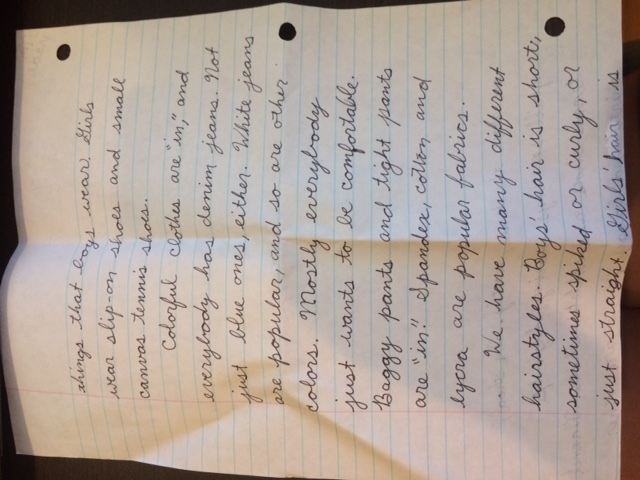 things that boys wear. Girls
wear slip-on shoes and small
canvas tennis shoes.
Colorful clothes are "in," and
everybody has denim jeans. Not
just blue ones, either. White jeans
are popular, and so are other
colors. Mostly everybody
just wants to be comfortable.
Baggy pants and tight pants
are "in." Spandex, cotton and
lycra are popular fabrics.
We have many different
hairstyles. Boys' hair is short,
sometimes spiked or curly, or
just straight. Girls' hair is